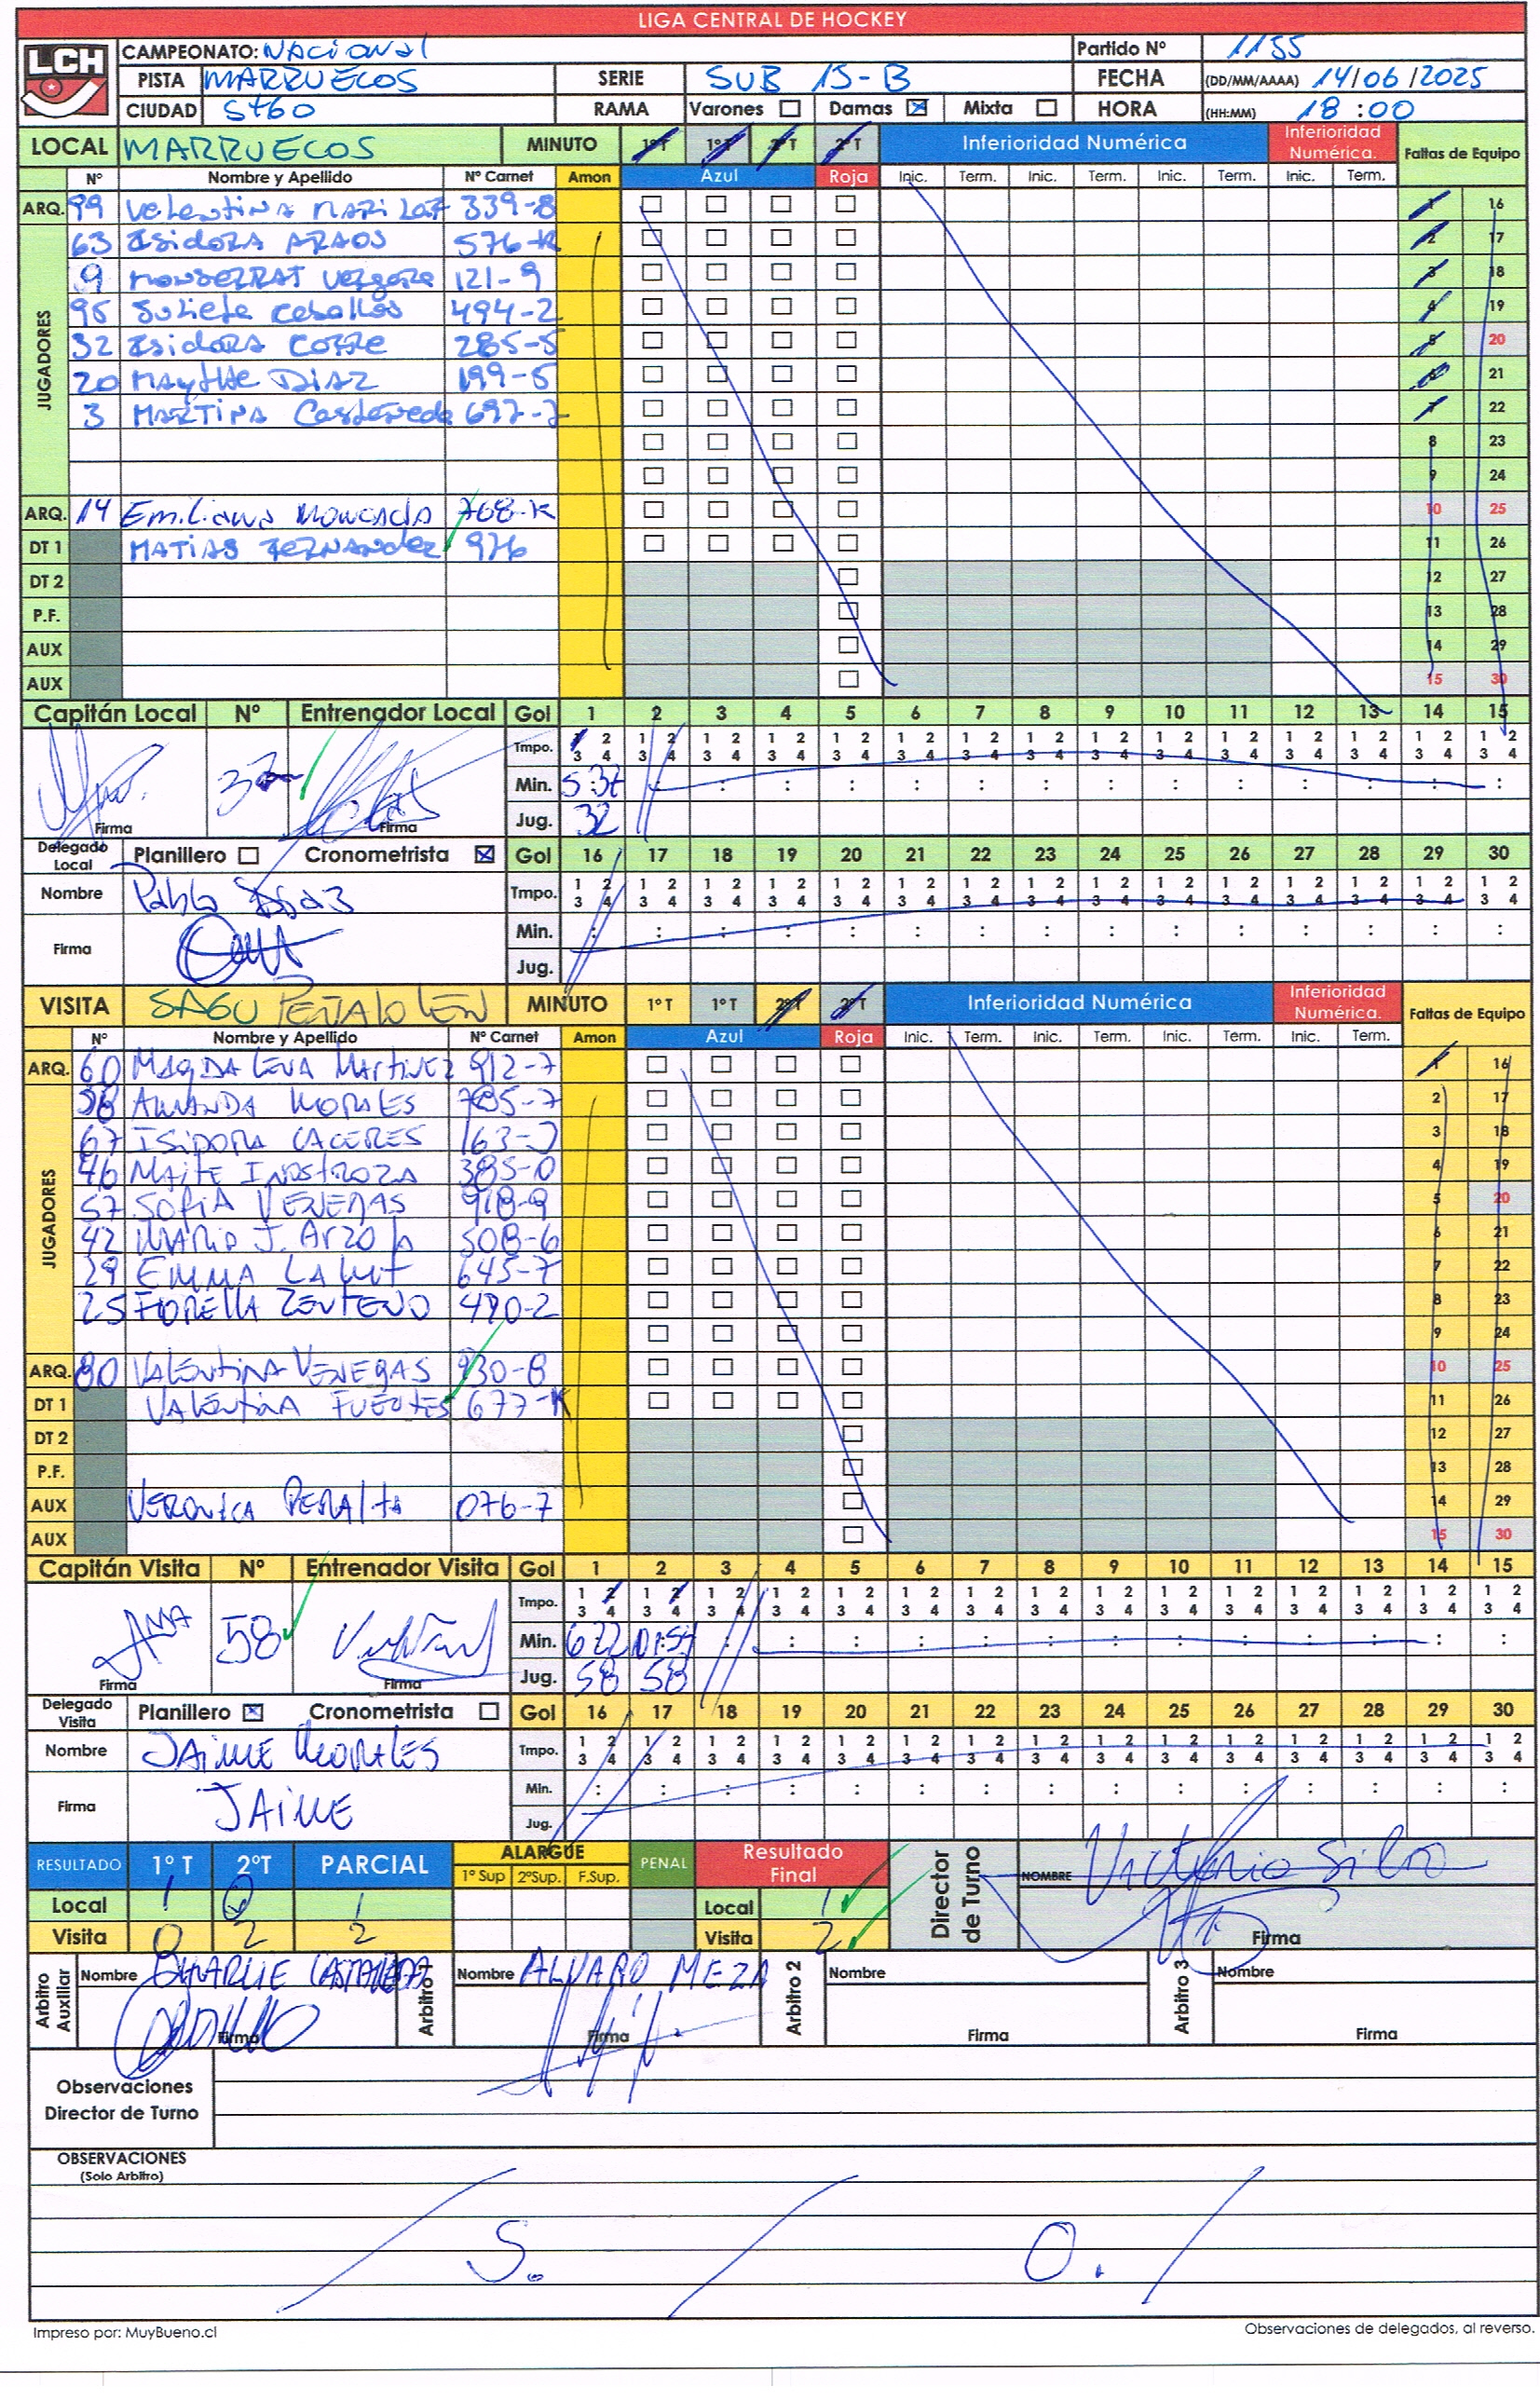 LIGA CENTRAL DE HOCKEY
LCH
CAMPEONATO: NACIONAL Partido Nº 1155
PISTA MARRUECOS SERIE SUB 15-B FECHA (DD/MM/AAAA) 14/06/2025
CIUDAD Stgo RAMA Varones ☐ Damas ☒ Mixta ☐ HORA (HH:MM) 18:00
LOCAL MARRUECOS MINUTO 1ºT 1ºT 2ºT 2ºT Inferioridad Numérica Inferioridad Numérica. Faltas de Equipo
Nº Nombre y Apellido Nº Carnet Amon Azul Roja Inic. Term. Inic. Term. Inic. Term. Inic. Term.
ARQ. 99 Valentina 339-8 1 16
JUGADORES
63 Isidora ARAOS 576-K 2 17
9 Monserrat Vergara 121-9 3 18
95 Julieta Ceballos 494-2 4 19
32 Isidora Cofre 285-5 5 20
20 Maythe DIAZ 199-5 6 21
3 MARTINA Castañeda 697-7 7 22
8 23
9 24
ARQ. 14 Emiliana Moncada 768-K 10 25
DT 1 MATIAS FERNANDEZ 976 11 26
DT 2 12 27
P.F. 13 28
AUX 14 29
AUX 15 30
Capitán Local Nº Entrenador Local Gol 1 2 3 4 5 6 7 8 9 10 11 12 13 14 15
Tmpo. 1 2 3 4
Firma 32 Firma Min. 5:37
Jug. 32
Delegado Local Planillero ☐ Cronometrista ☒ Gol 16 17 18 19 20 21 22 23 24 25 26 27 28 29 30
Nombre Pablo Díaz Tmpo. 1 2 3 4
Firma Min.
Jug.
VISITA SAGU PEÑALOLEN MINUTO 1ºT 1ºT 2ºT 2ºT Inferioridad Numérica Inferioridad Numérica. Faltas de Equipo
Nº Nombre y Apellido Nº Carnet Amon Azul Roja Inic. Term. Inic. Term. Inic. Term. Inic. Term.
ARQ. 60 MAGDALENA MARTINEZ 912-7 1 16
JUGADORES
58 AMANDA MORALES 785-7 2 17
67 ISIDORA CACERES 163-J 3 18
46 MAITE INOSTROZA 385-0 4 19
57 SOFIA VENEGAS 918-9 5 20
42 MARIA J. ARZOLA 508-6 6 21
29 EMMA LAMIT 645-7 7 22
25 FIORELLA ZENTENO 490-2 8 23
9 24
ARQ. 80 VALENTINA VENEGAS 930-8 10 25
DT 1 VALENTINA FUENTES 677-K 11 26
DT 2 12 27
P.F. 13 28
AUX VERONICA PERALTA 076-7 14 29
AUX 15 30
Capitán Visita Nº Entrenador Visita Gol 1 2 3 4 5 6 7 8 9 10 11 12 13 14 15
Tmpo. 1 2 3 4
AMA 58 Min. 6 22 01:54
Firma Firma Jug. 58 58
Delegado Visita Planillero ☒ Cronometrista ☐ Gol 16 17 18 19 20 21 22 23 24 25 26 27 28 29 30
Nombre JAIME MORALES Tmpo. 1 2 3 4
Firma JAIME Min.
Jug.
RESULTADO 1º T 2ºT PARCIAL ALARGUE 1º Sup 2ºSup. F.Sup. PENAL Resultado Final Director de Turno NOMBRE Victorio Silva
Local 1 0 1 Local 1
Visita 0 2 2 Visita 2 Firma
Arbitro Auxiliar Nombre CHARLIE CASTAÑEDA Arbitro 1 Nombre ALVARO MEZA Arbitro 2 Nombre Arbitro 3 Nombre
Firma Firma Firma Firma
Observaciones
Director de Turno
OBSERVACIONES
(Solo Arbitro)
S. / O.
Impreso por: MuyBueno.cl Observaciones de delegados, al reverso.